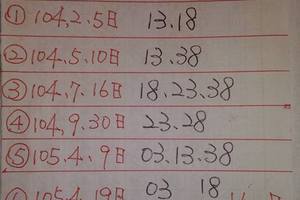 ① 104.2.5日 13.18
② 104.5.10日 13.38
③ 104.7.16日 18.23.38
④ 104.9.30日 23.28
⑤ 105.4.9日 03.13.38
105.4.19日 03 18